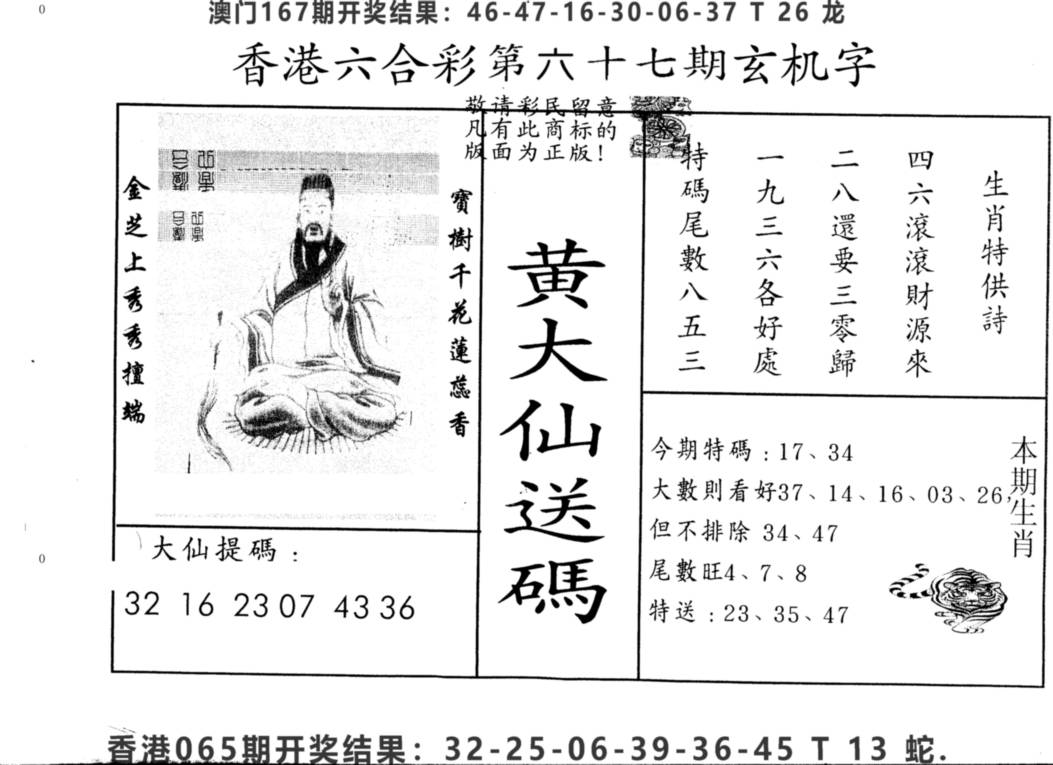 澳门167期开奖结果：46-47-16-30-06-37 T 26 龙
香港六合彩第六十七期玄机字
敬请彩民留意
凡有此商标的
版面为正版！
金芝上秀秀擅端
寶樹千花蓮蕊香
黄大仙送碼
生肖特供詩
四六滾滾財源來
二八還要三零歸
一九三六各好處
特碼尾數八五三
大仙提碼：
32 16 23 07 43 36
本期生肖
今期特碼：17、34
大數則看好37、14、16、03、26,
但不排除 34、47
尾數旺4、7、8
特送：23、35、47
香港065期开奖结果：32-25-06-39-36-45 T 13 蛇.
0
0